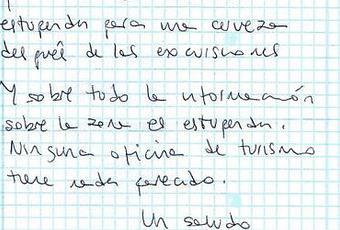 estupenda para una cerveza
después de las excursiones
Y sobre todo la información
sobre la zona es estupenda.
Ninguna oficina de turismo
tiene nada parecido.
Un saludo